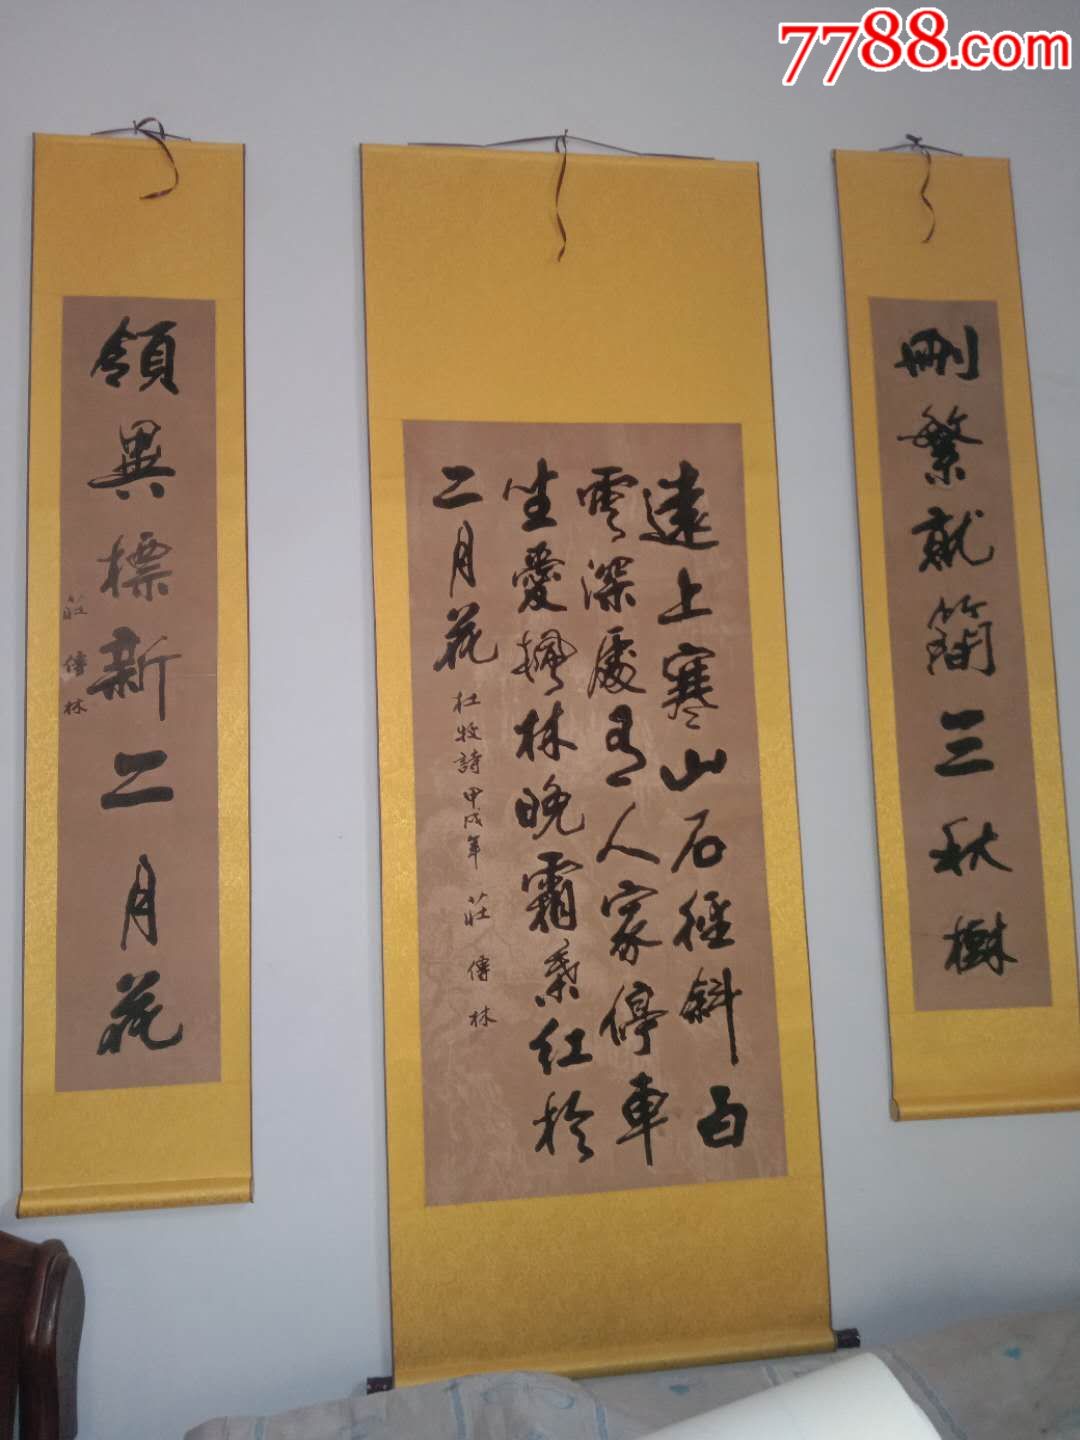 7788.com
刪繁就簡三秋樹
遠上寒山石徑斜白
雲深處有人家停車
坐愛楓林晚霜葉紅於
二月花
杜牧詩 甲戌年 莊傳林
領異標新二月花
莊傳林